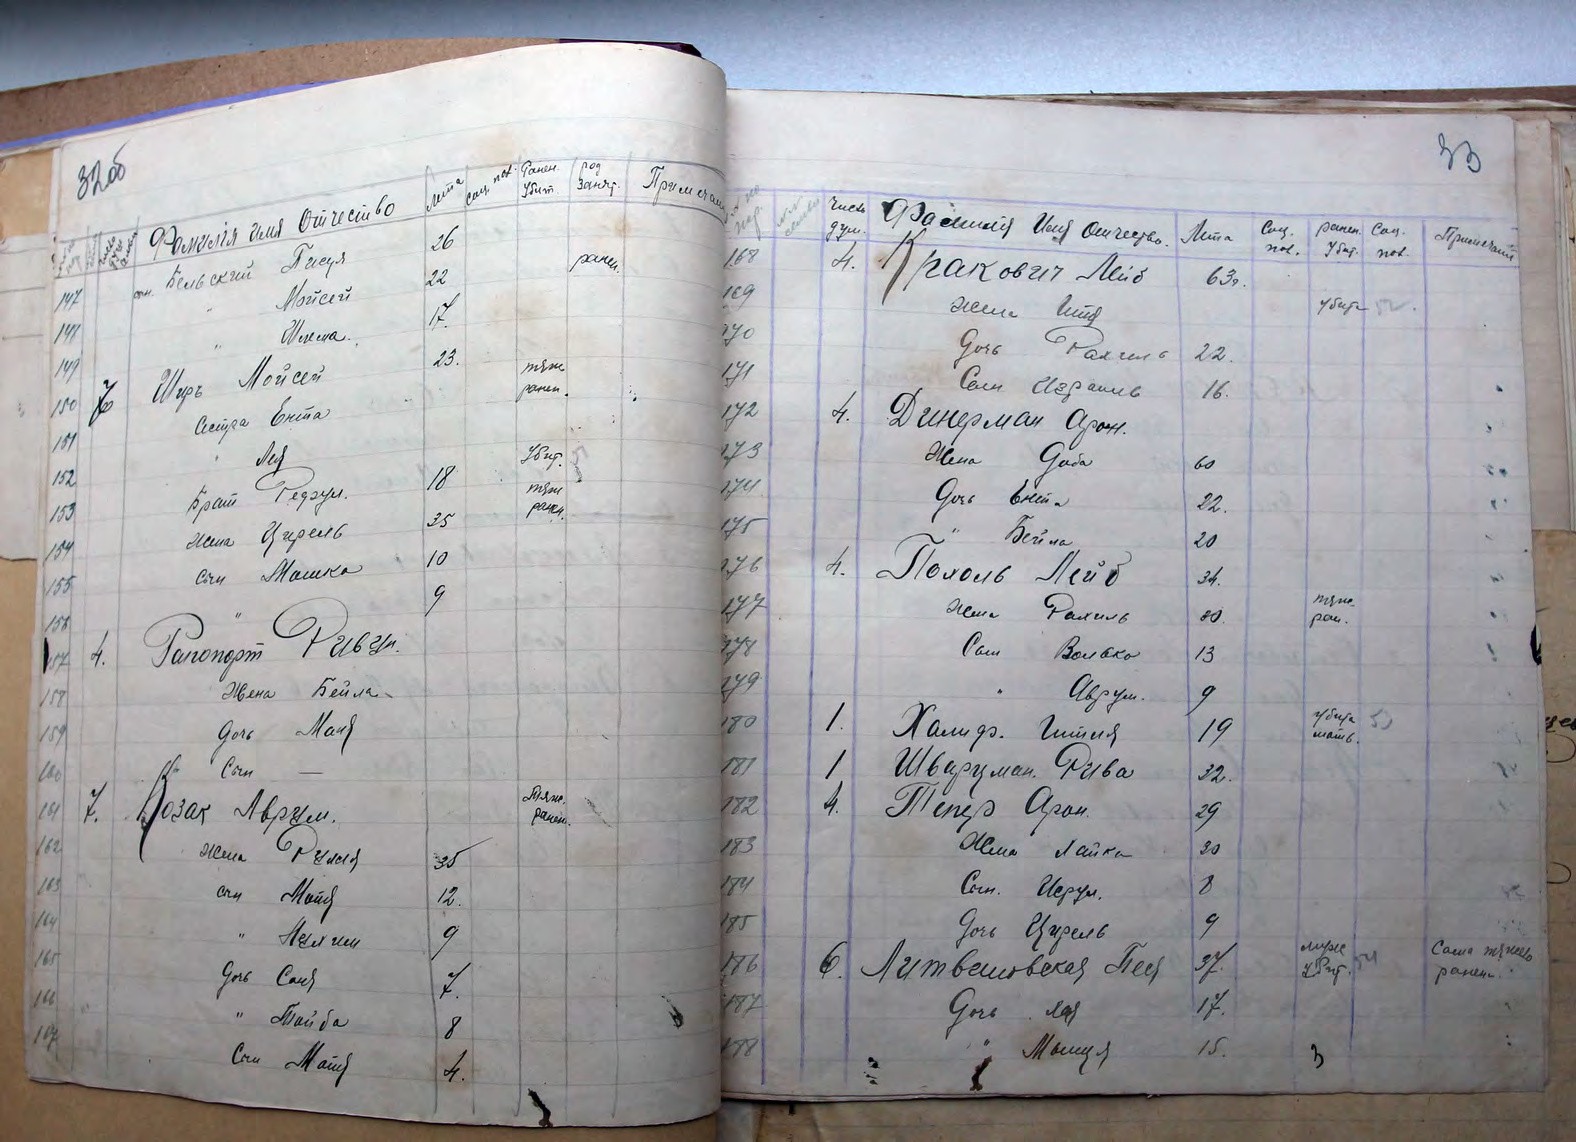 32об
Фамилія имя Отчество Лѣта Соц. пол. Ранен. Убит. род занят. Примечан
147 сын. Бельский Писуя 26
148 " Мойсей 22 ранен.
149 " Шлема. 17.
150 7 Ширь Мойсей 23. тяж ранен.
151 Сестра Ента
152 " Лея Убит.
153 Брат Гедзул. 18 тяж ранен.
154 Жена Цирель 35
155 Сын Мошка 10
156 " 9
157 4. Рапопорт Ривин.
158 Жена Бейла
159 Дочь Маня
160 Сын —
161 7. Козак Аврум. Тяж. ранен.
162 Жена Рухля 35
163 сын Мотя 12.
164 " Нахим 9
165 Дочь Соня 7.
166 " Тойба 8
167 Сын Мотя 4.
33
число душ. Фамилия Имя Отчество. Лѣта Соц. пол. ранен. Убит. Соц. пол. Примечан
168 4. Кракович Лейб 63г.
169 Жена Итя Убита 52.
170 Дочь Рахиль 22.
171 Сын Израиль 16.
172 4. Динерман Арон.
173 Жена Доба 60
174 Дочь Ента 22.
175 " Бейла 20
176 4. Похоль Лейб 34.
177 Жена Рахиль 30. тяж. ран.
178 Сын Волько 13
179 " Аврум. 9
180 1. Халиф. Гитля 19 убита мать. 53
181 1 Шварцман. Рива 32.
182 4. Тепер Арон. 29
183 Жена Хайка 30
184 Сын. Исрул. 8
185 Дочь Цирель 9
186 6. Литвешовская Песя 37. муж Убит. 54 Сама тяжело ранен.
187 Дочь Лея 17.
188 " Мышуля 15. 3